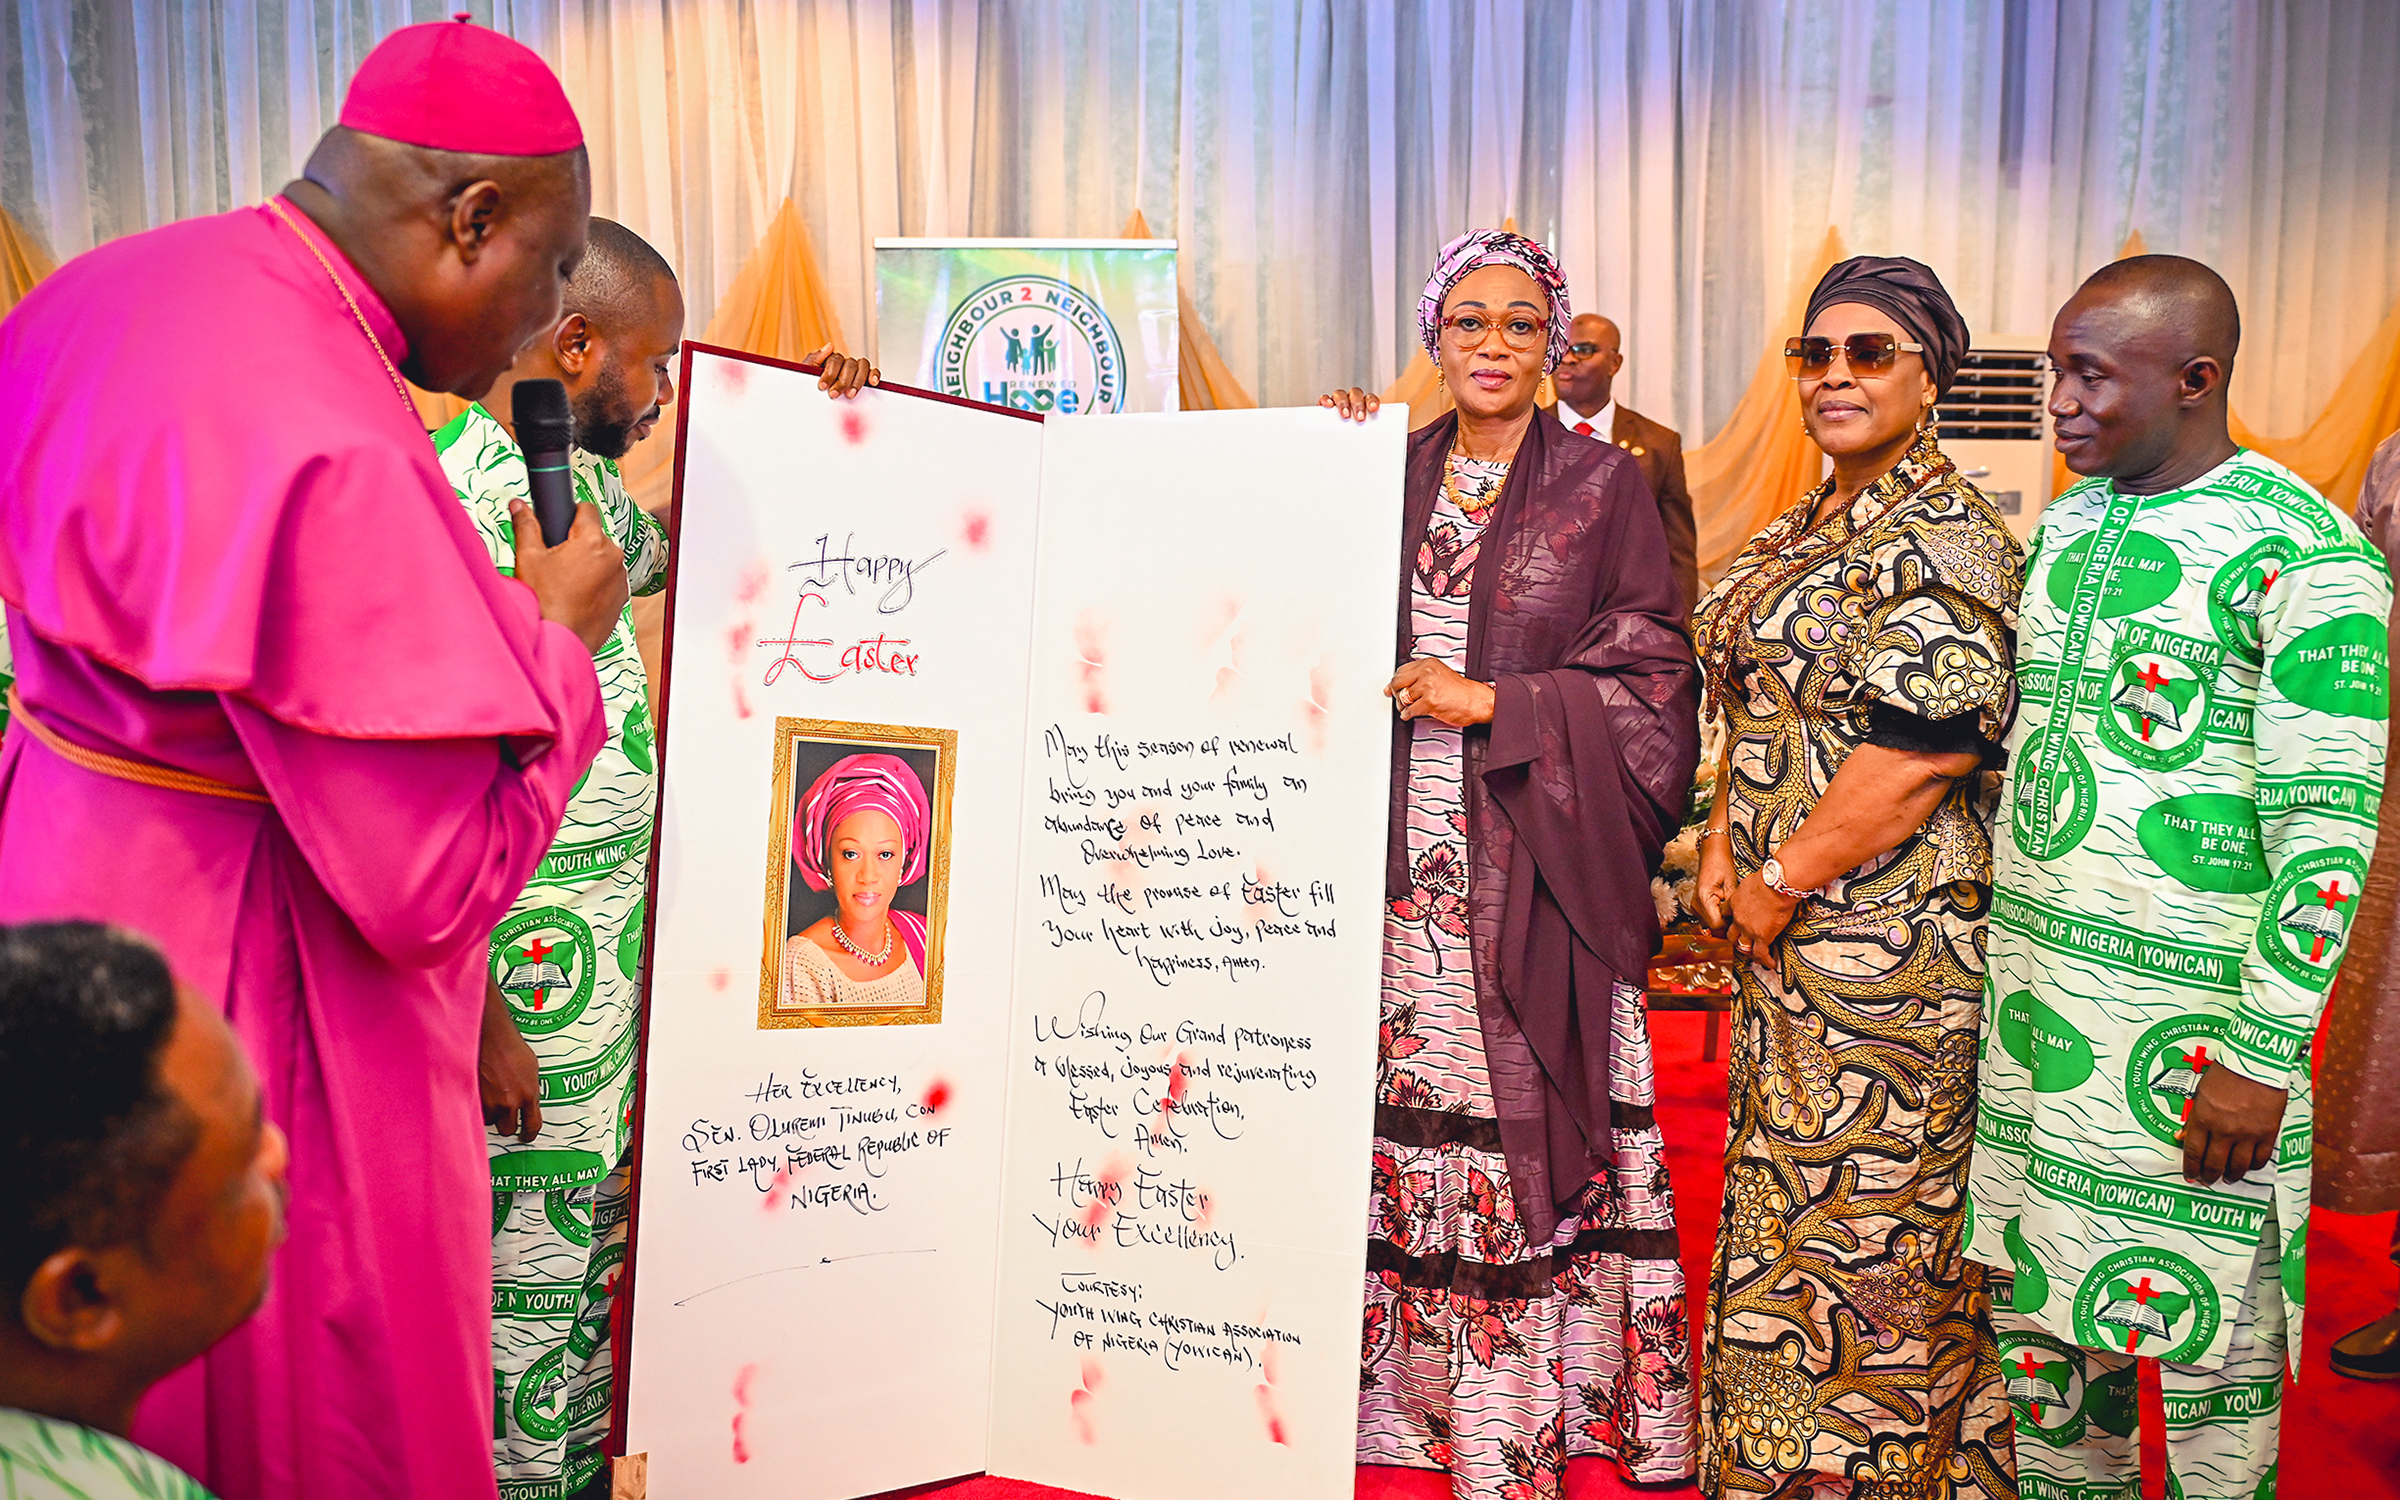 NEIGHBOUR 2 NEIGHBOUR
RENEWED
Hope
Happy
Easter
HER EXCELLENCY,
SEN. OLUREMI TINUBU, CON
FIRST LADY, FEDERAL REPUBLIC OF
NIGERIA.
May this season of renewal
bring you and your family an
abundance of peace and
Overwhelming Love.
May the promise of Easter fill
Your heart with Joy, peace and
happiness, Amen.
Wishing Our Grand patroness
a blessed, joyous and rejuvenating
Easter Celebration,
Amen.
Happy Easter
Your Excellency.
COURTESY:
YOUTH WING CHRISTIAN ASSOCIATION
OF NIGERIA (YOWICAN).
THAT THEY ALL
BE ONE,
ST. JOHN 17:21
ASSOCIATION OF NIGERIA (YOWICAN)
NIGERIA (YOWICAN) YOUTH W
YOUTH WING, CHRISTIAN ASSOCIATION OF NIGERIA
THAT THEY ALL MAY BE ONE